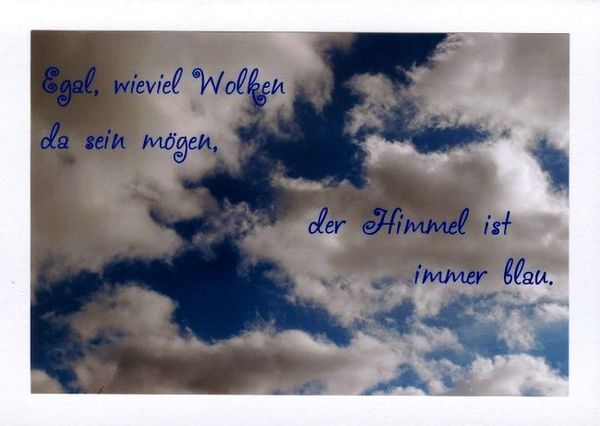 Egal, wieviel Wolken
da sein mögen,
der Himmel ist
immer blau.